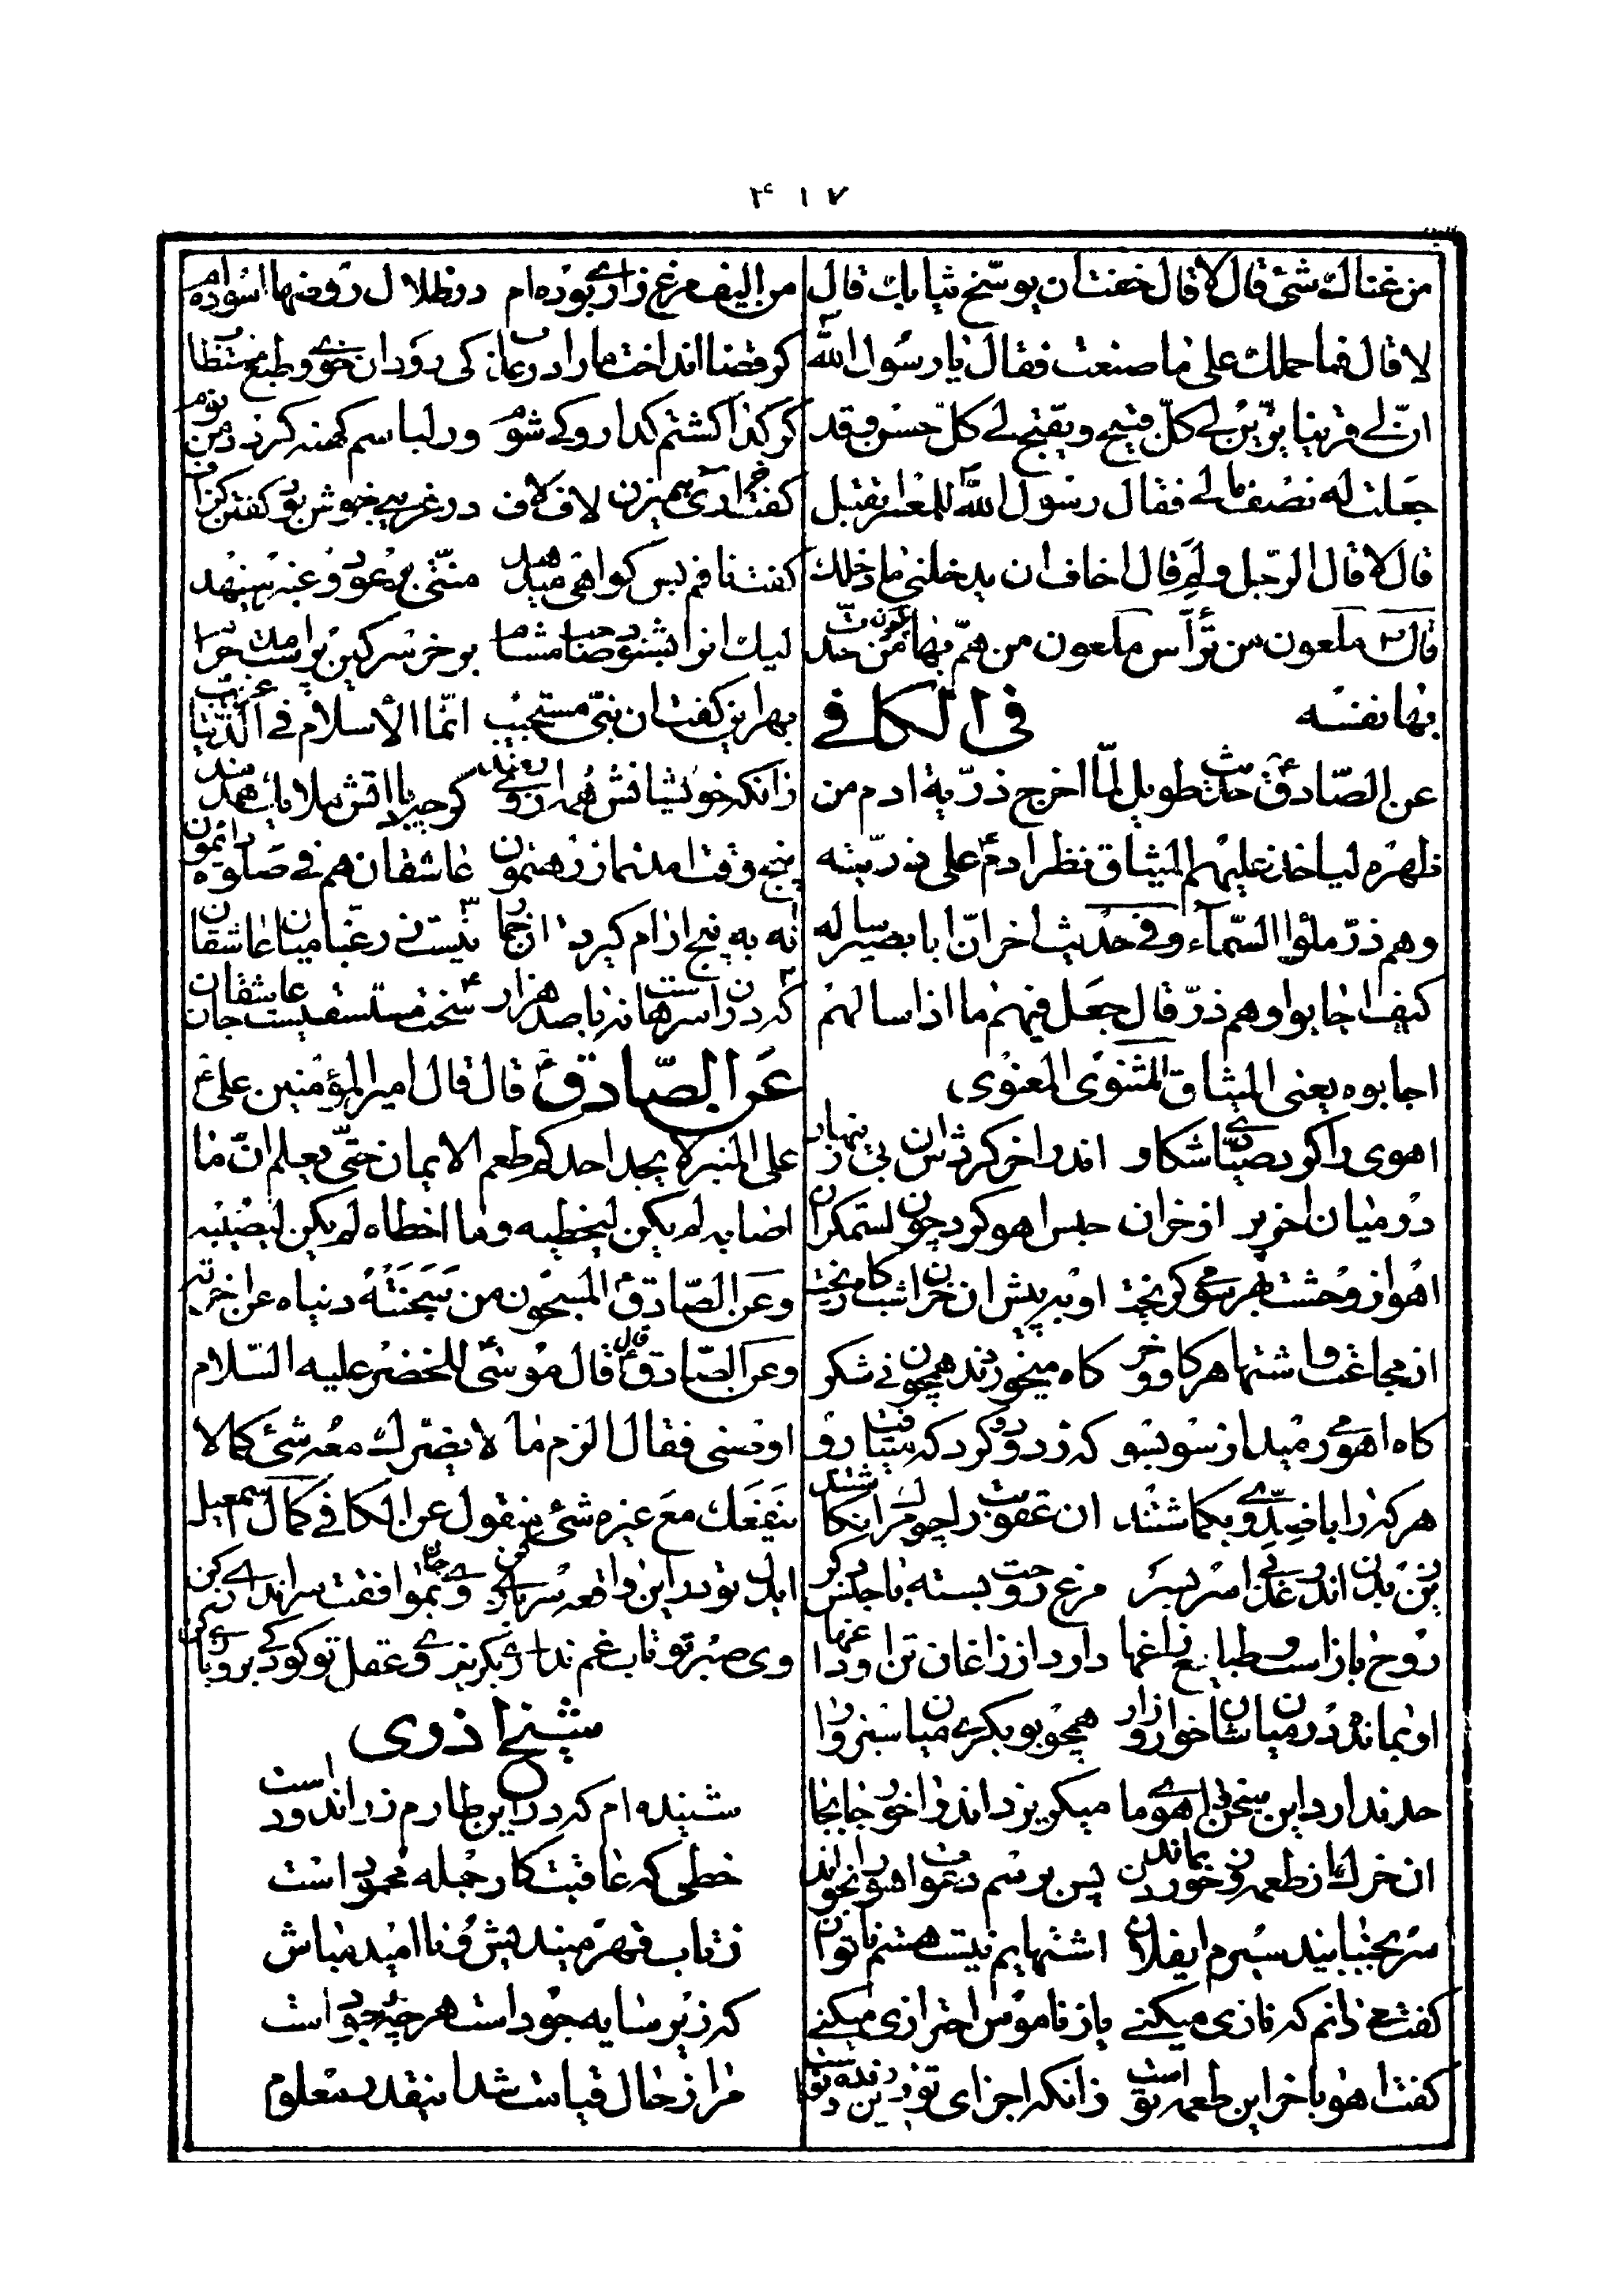 ۴۱۷
من غناك شئ قال لا قال خفت ان يوسّخ ثيابك قال
لا قال فما حملك على ما صنعت فقال يا رسول الله
ان لے قرينا يزيّن لے كلّ قبيح ويقبّح لے كلّ حسن وقد
جعلت له نصف مالے فقال رسول الله للمعسر اتقبل
قال لا قال الرّجل ولم قال اخاف ان يدخلنى ما دخلك
قال ملعون من ترأّس ملعون من همّ بها ملعون من حدث
بها نفسه
فى الكافے
عن الصّادق حديث طويل لمّا اخرج ذرّية ادم من
ظهره لياخذ عليهم الميثاق نظر ادم على ذرّيته
وهم ذرّ ملؤا السّماء وفے حديث اخر انّ ابا بصير ساله
كيف اجابوا وهم ذرّ قال جعل فيهم ما اذا سالهم
اجابوه يعنى الميثاق المثنوى المعنوى
اهوى را كرد صيّادے شكار اندر اخر كردش ان بى زينهار
در ميان اخر پر از خران حبس اهو كرد چون استمكران
اهو از وحشت بهر سو ميگريخت او به پيش ان خران شب كاه ريخت
از مجاعت و اشتها هر كاو و خر كاه ميخوردند همچون نے شكر
كاه اهو ميرميد از سو بسو كه ز دود و گرد كه ميتافت رو
هر كه را با ضدّ وے بكذاشتند ان عقوبت را چو مرگ انكاشتند
زين بدن اندر عذابى اے پسر مرغ روحت بسته با جنس دگر
روح باز است و طبايع زاغها دارد از زاغان تن او داغها
او بمانده در ميانشان خوار و زار همچو بو بكرے ميان سبزوار
حد ندارد اين سخن و اهوے ما ميگريزد اندر اخور جابجا
ان خرك از طعمه و خوردن بماند پس برسم دعوت اهو را بخواند
سر بجنبانيد سيرم ايفلان اشتهايم نيست هستم ناتوان
كفت ميدانم كه نازى ميكنے ياز ناموس احترازى ميكنے
كفت اهو با خر اين طعمه تو است زانكه اجزاى تو زين زنده و نو است
من اليف مرغزارے بوده ام در ظلال و روضها اسوده ام
كر قضا انداخت ما را در عذاب كى رود ان خوے و طبع مستطاب
كر كدا كشتم كدا رو كے شوم ور لباسم كهنه كردد من نوم
كفت ارى ميزن لاف لاف در غريبے خوش بود كفتن كزاف
كفت نافم بس كواهى ميدهد منّتى بر عود و عنبر مينهد
ليك انرا بشنود صاحب مشام بر خر سركين پرست امد حرام
بهر اين كفت ان نبىّ مستجيب انّما الأسلام فے الدّنيا غريب
زانكه خويشانش هم از وے ميرمند كرچه با ذاتش ملايك همدمند
پنج وقت امد نماز رهنمون عاشقان هم فے صلوة دائمون
نه به پنج ارام كيرد ان خمار كه در ان سرهاست نه با صد هزار
نيست زر غبّا ميان عاشقان سخت مستسقيست جان عاشقان
عن الصّادق قال قال امير المؤمنين علىّ
على المنبر لا يجد احدكم طعم الايمان حتّى يعلم انّ ما
اصابه لم يكن ليخطيه وما اخطاه لم يكن ليصيبه
وعن الصّادق المسجون من سجنته دنياه عن اخرته
وعن الصّادق قال قال موسى للخضر عليه السّلام
اوصنى فقال الزم ما لا يضرّك معه شئ كما لا
ينفعك مع غيره شئ منقول عن الكافے كمال اسمعيل
ايدل تو در اين واقعه وے جان بموافقت سر اندر كن
وى صبر تو تاب غم ندارے بگريز وے عقل تو كودكے برو
شيخ اذرى
شنيده ام كه در اين طارم زر اندود است
خطى كه عاقبت كار جمله محمود است
ز تاب قهر مينديش و نا اميد مباش
كه زير سايه جود است هر چه موجود است
مرا ز حال قيامت شد اينقدر معلوم